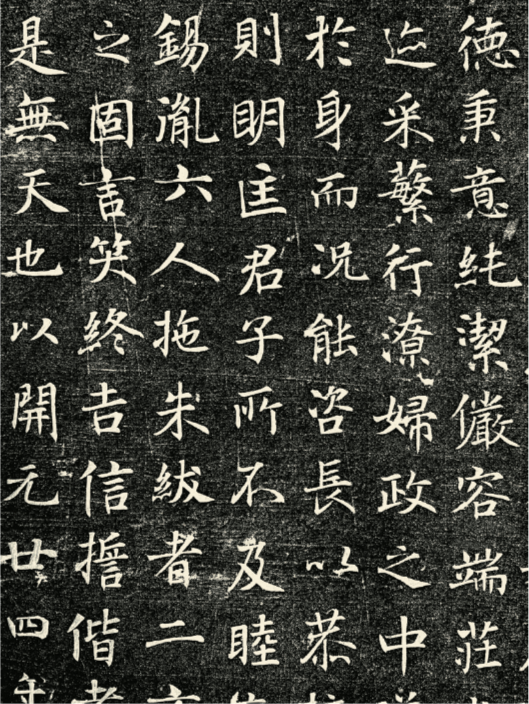 德秉意純潔儼容端莊
迹采蘩行潦婦政之中
於身而況能咨長以恭
則明匡君子所不及睦
錫胤六人拖朱紱者二
之固言笑終吉信擔偕老
是無天也以開元廿四年